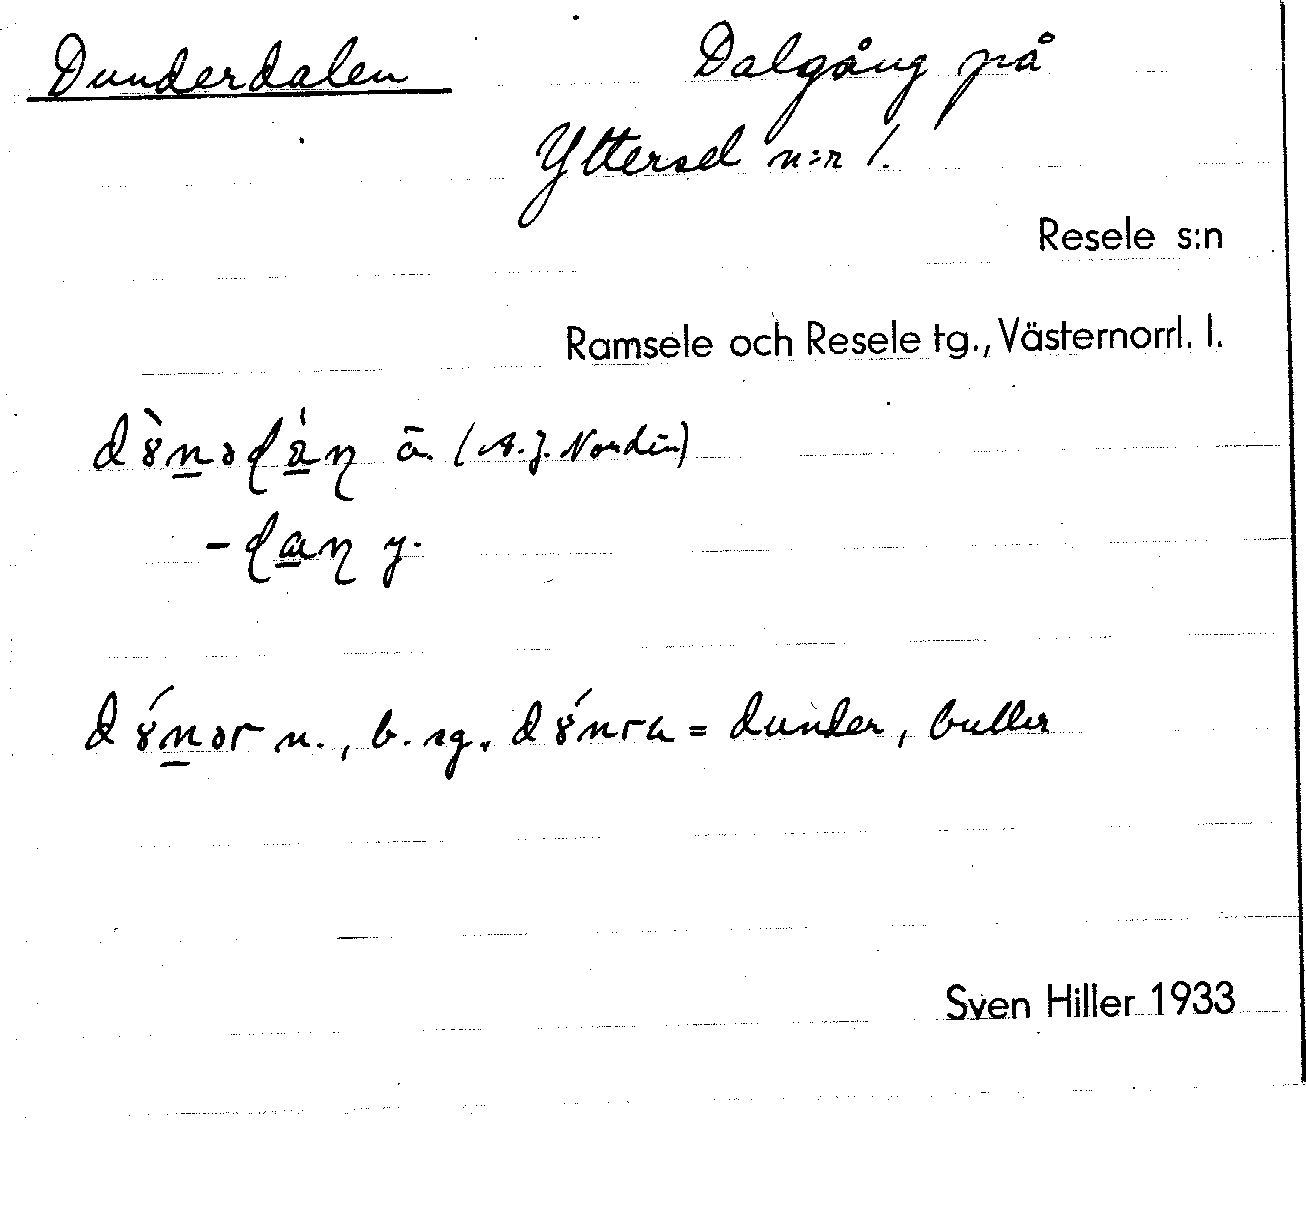 Dunderdalen Dalgång på
Yttersel n:r 1.
Resele s:n
Ramsele och Resele tg., Västernorrl. l.
ä. (A. J. Nordin)
y.
n., b. sg. = dunder, buller
Sven Hiller 1933